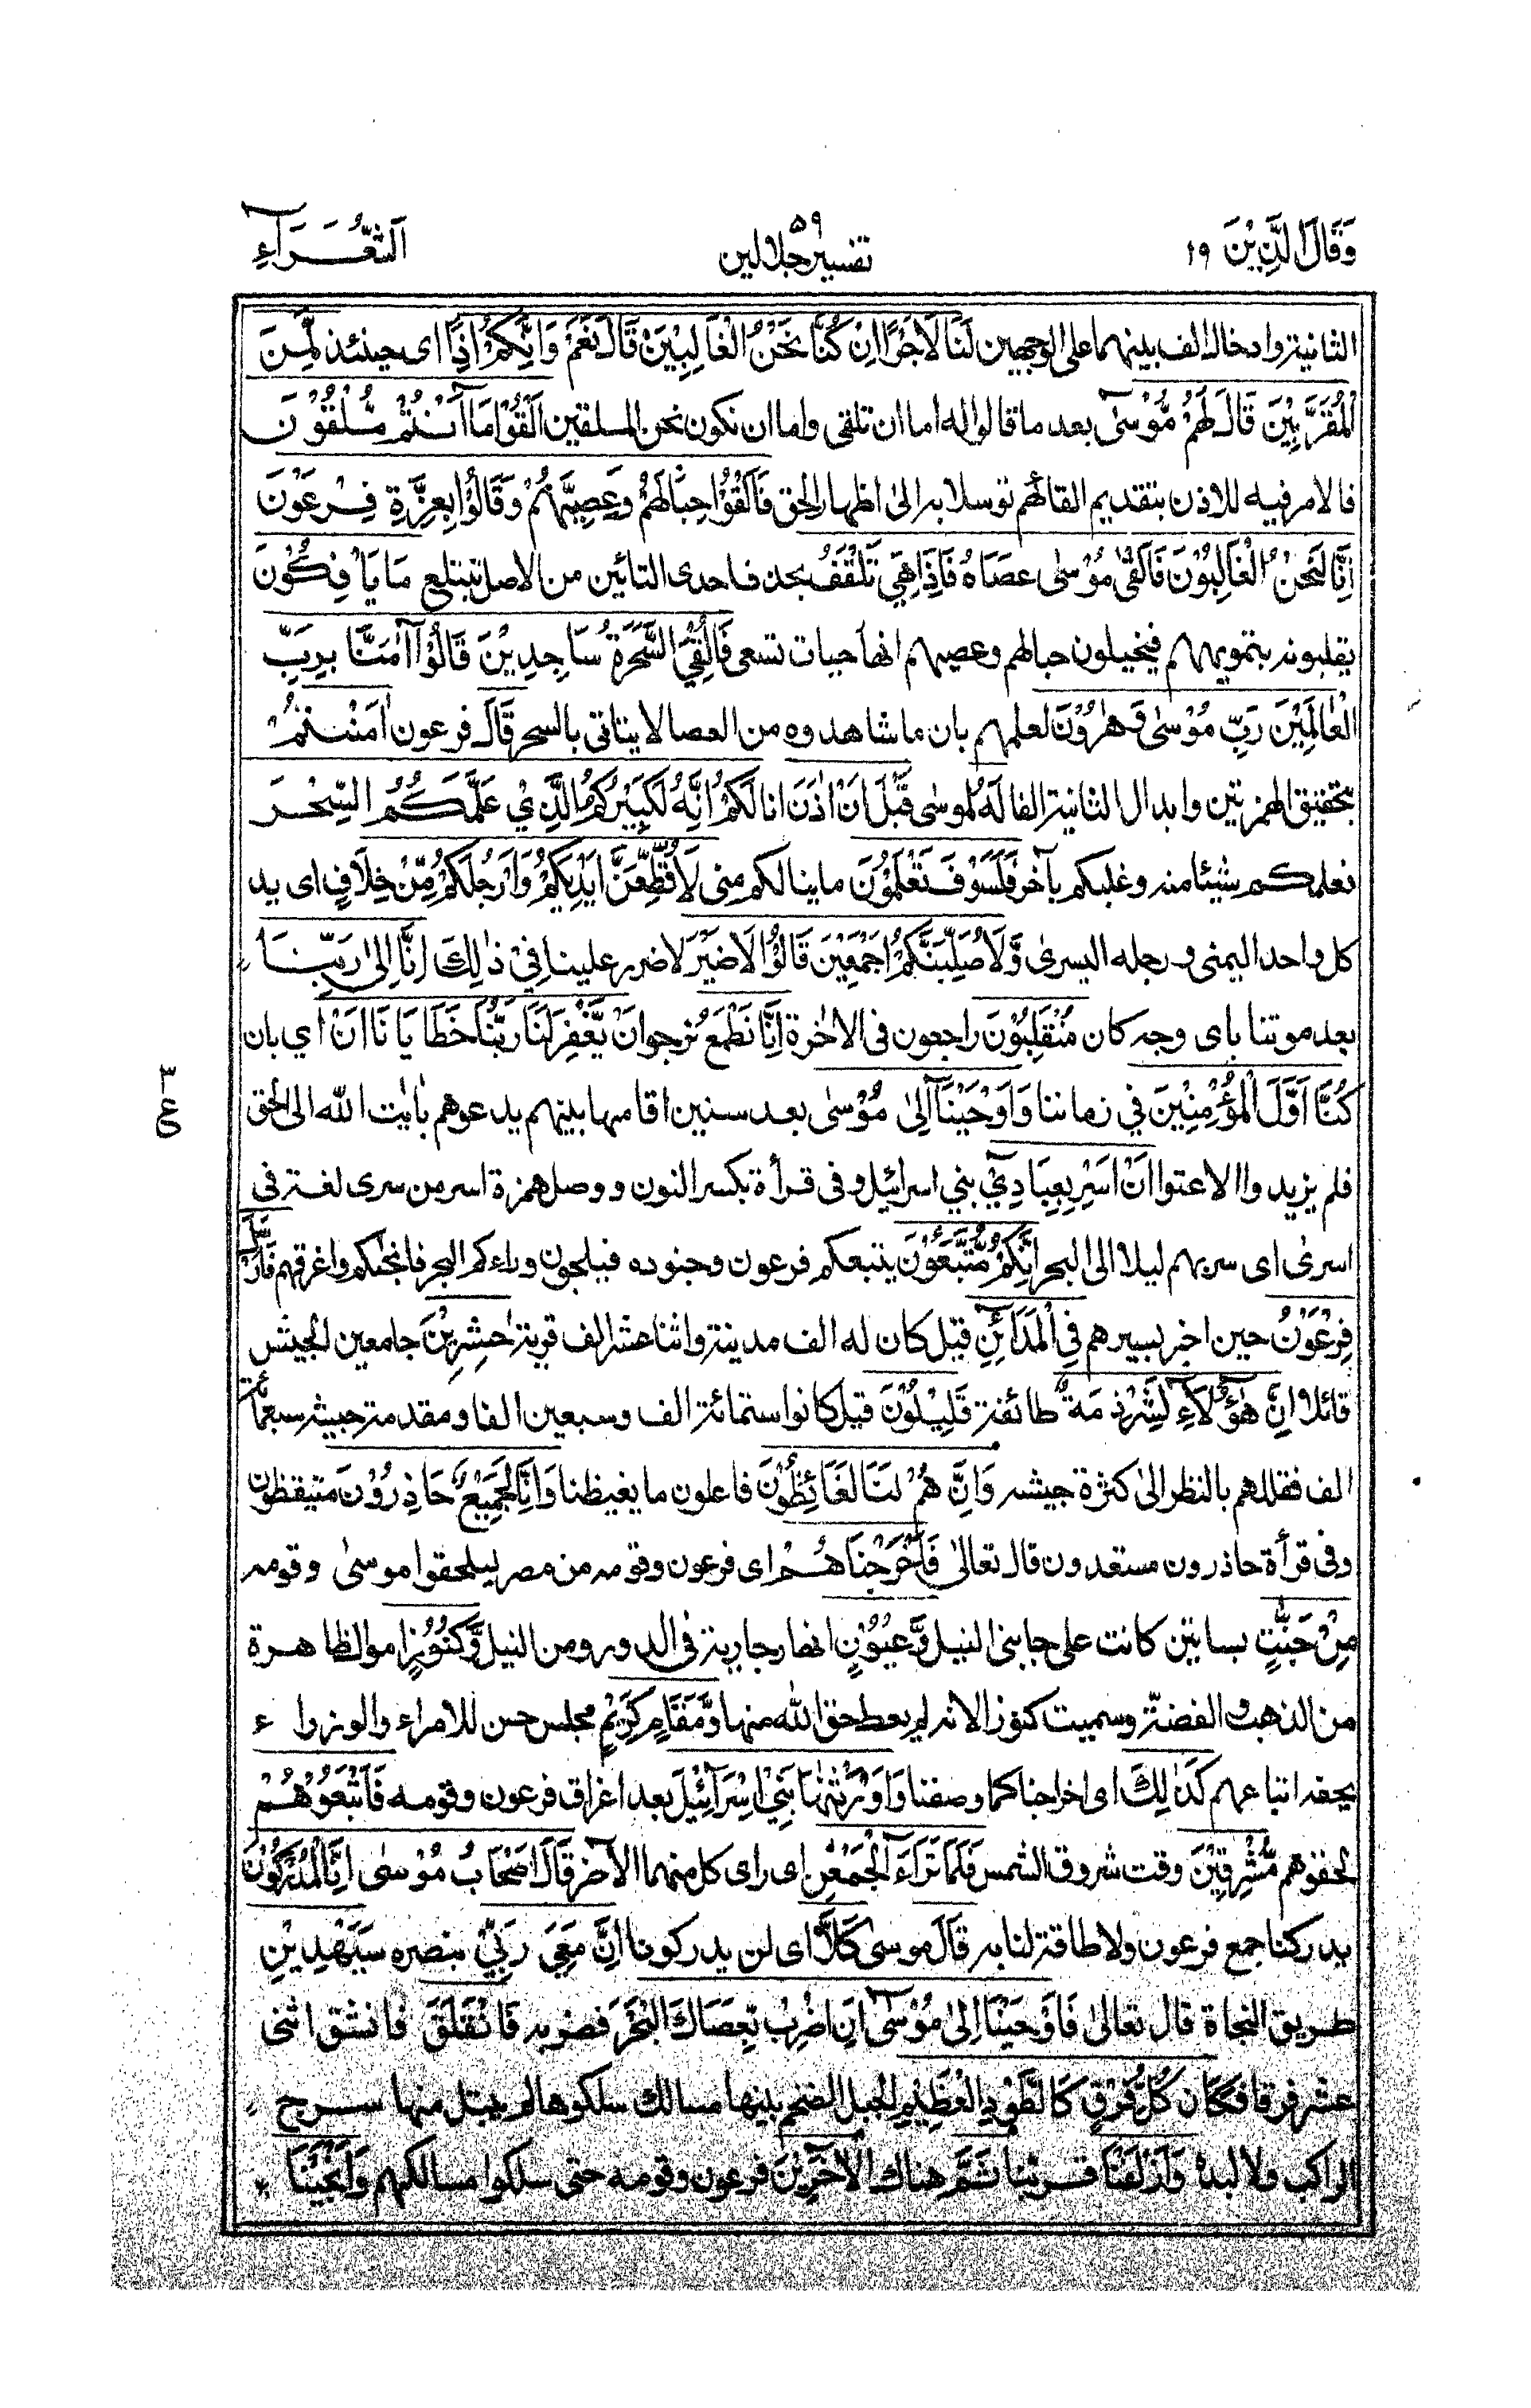 وَقَالَ الَّذِيْنَ ١٩
٥٩
تفسير جلالين
اَلشُّعَرَآءِ
الثانية وادخال الف بينهما على الوجهين لَنَا لَاَجْرًا اِنْ كُنَّا نَحْنُ الْغَالِبِيْنَ قَالَ نَعَمْ وَاِنَّكُمْ اِذًا اى حينئذ لَّمِنَ
الْمُقَرَّبِيْنَ قَالَ لَهُمْ مُّوْسٰٓى بعد ما قالوا له اما ان تلقى واما ان نكون نحن الملقين اَلْقُوْا مَآ اَنْتُمْ مُّلْقُوْنَ
فالامر فيه للاذن بتقديم القائهم توسلا به الى اظهار الحق فَاَلْقَوْا حِبَالَهُمْ وَعِصِيَّهُمْ وَقَالُوْا بِعِزَّةِ فِرْعَوْنَ
اِنَّا لَنَحْنُ الْغٰلِبُوْنَ فَاَلْقٰى مُوْسٰى عَصَاهُ فَاِذَا هِيَ تَلْقَفُ بحذف احدى التائين من الاصل تبتلع مَا يَاْفِكُوْنَ
يقلبونه بتمويههم فيخيلون حبالهم وعصيهم انها حيات تسعى فَاُلْقِيَ السَّحَرَةُ سَاجِدِيْنَ قَالُوْٓا اٰمَنَّا بِرَبِّ
الْعٰلَمِيْنَ رَبِّ مُوْسٰى وَهٰرُوْنَ لعلمهم بان ما شاهدوه من العصا لا يتاتى بالسحر قَالَ فرعون ءَاٰمَنْتُمْ
بتحقيق الهمزتين وابدال الثانية الفا لَهٗ لموسى قَبْلَ اَنْ اٰذَنَ انا لَكُمْ اِنَّهٗ لَكَبِيْرُكُمُ الَّذِيْ عَلَّمَكُمُ السِّحْرَ
فعلمكم شيئا منه وغلبكم بآخر فَلَسَوْفَ تَعْلَمُوْنَ ما ينالكم منى لَاُقَطِّعَنَّ اَيْدِيَكُمْ وَاَرْجُلَكُمْ مِّنْ خِلَافٍ اى يد
كل واحد اليمنى ورجله اليسرى وَّلَاُصَلِّبَنَّكُمْ اَجْمَعِيْنَ قَالُوْا لَا ضَيْرَ لا ضرر علينا فِيْ ذٰلِكَ اِنَّآ اِلٰى رَبِّنَا
بعد موتنا باى وجه كان مُنْقَلِبُوْنَ راجعون فى الاٰخرة اِنَّا نَطْمَعُ نرجو اَنْ يَّغْفِرَ لَنَا رَبُّنَا خَطَايَانَا اَنْ اي بان
كُنَّا اَوَّلَ الْمُؤْمِنِيْنَ في زماننا وَاَوْحَيْنَآ اِلٰى مُوْسٰى بعد سنين اقامها بينهم يدعوهم باٰيٰت الله الى الحق
فلم يزيدوا الا عتوا اَنْ اَسْرِ بِعِبَادِيْٓ بني اسرائيل وفى قرأة بكسر النون ووصل همزة اسر من سرى لغة فى
اسرٰى اى سر بهم ليلا الى البحر اِنَّكُمْ مُّتَّبَعُوْنَ يتبعكم فرعون وجنوده فيلجون وراءكم البحر فانجٰيكم واغرقهم فَاَرْسَلَ
فِرْعَوْنُ حين اخبر بسيرهم فِي الْمَدَآئِنِ قيل كان له الف مدينة واثنا عشر الف قرية حٰشِرِيْنَ جامعين الجيش
قائلا اِنَّ هٰٓؤُلَآءِ لَشِرْذِمَةٌ طائفة قَلِيْلُوْنَ قيل كانوا ستمائة الف وسبعين الفا ومقدمة جيشه سبعمائة
الف فقللهم بالنظر الى كثرة جيشه وَاِنَّهُمْ لَنَا لَغَآئِظُوْنَ فاعلون ما يغيظنا وَاِنَّا لَجَمِيْعٌ حَاذِرُوْنَ متيقظون
وفى قرأة حاذرون مستعدون قال تعالى فَاَخْرَجْنَاهُمْ اى فرعون وقومه من مصر ليلحقوا موسى وقومه
مِنْ جَنّٰتٍ بساتين كانت على جانبى النيل وَّعُيُوْنٍ انهار جارية فى الدور من النيل وَّكُنُوْزٍ اموال ظاهرة
من الذهب والفضة وسميت كنوزا لانه لم يعط حق الله منها وَّمَقَامٍ كَرِيْمٍ مجلس حسن للامراء والوزراء
يحفه اتباعهم كَذٰلِكَ اى اخراجنا كما وصفنا وَاَوْرَثْنٰهَا بَنِيْٓ اِسْرَآئِيْلَ بعد اغراق فرعون وقومه فَاَتْبَعُوْهُمْ
لحقوهم مُّشْرِقِيْنَ وقت شروق الشمس فَلَمَّا تَرَآءَ الْجَمْعٰنِ اى راى كل منهما الآخر قَالَ اَصْحَابُ مُوْسٰى اِنَّا لَمُدْرَكُوْنَ
يدركنا جمع فرعون ولا طاقة لنا به قَالَ موسى كَلَّا اى لن يدركونا اِنَّ مَعِيَ رَبِّيْ بنصره سَيَهْدِيْنِ
طريق النجاة قال تعالى فَاَوْحَيْنَآ اِلٰى مُوْسٰٓى اَنِ اضْرِبْ بِّعَصَاكَ الْبَحْرَ فضربه فَانْفَلَقَ فانشق اثنى
عشر فرقا فَكَانَ كُلُّ فِرْقٍ كَالطَّوْدِ الْعَظِيْمِ الجبل الضخم بينها مسالك سلكوها لم يبتل منها سرج
الراكب ولا لبده وَاَزْلَفْنَا قربنا ثَمَّ هناك الْاٰخَرِيْنَ فرعون وقومه حتى سلكوا مسالكهم وَاَنْجَيْنَا
٣
ع